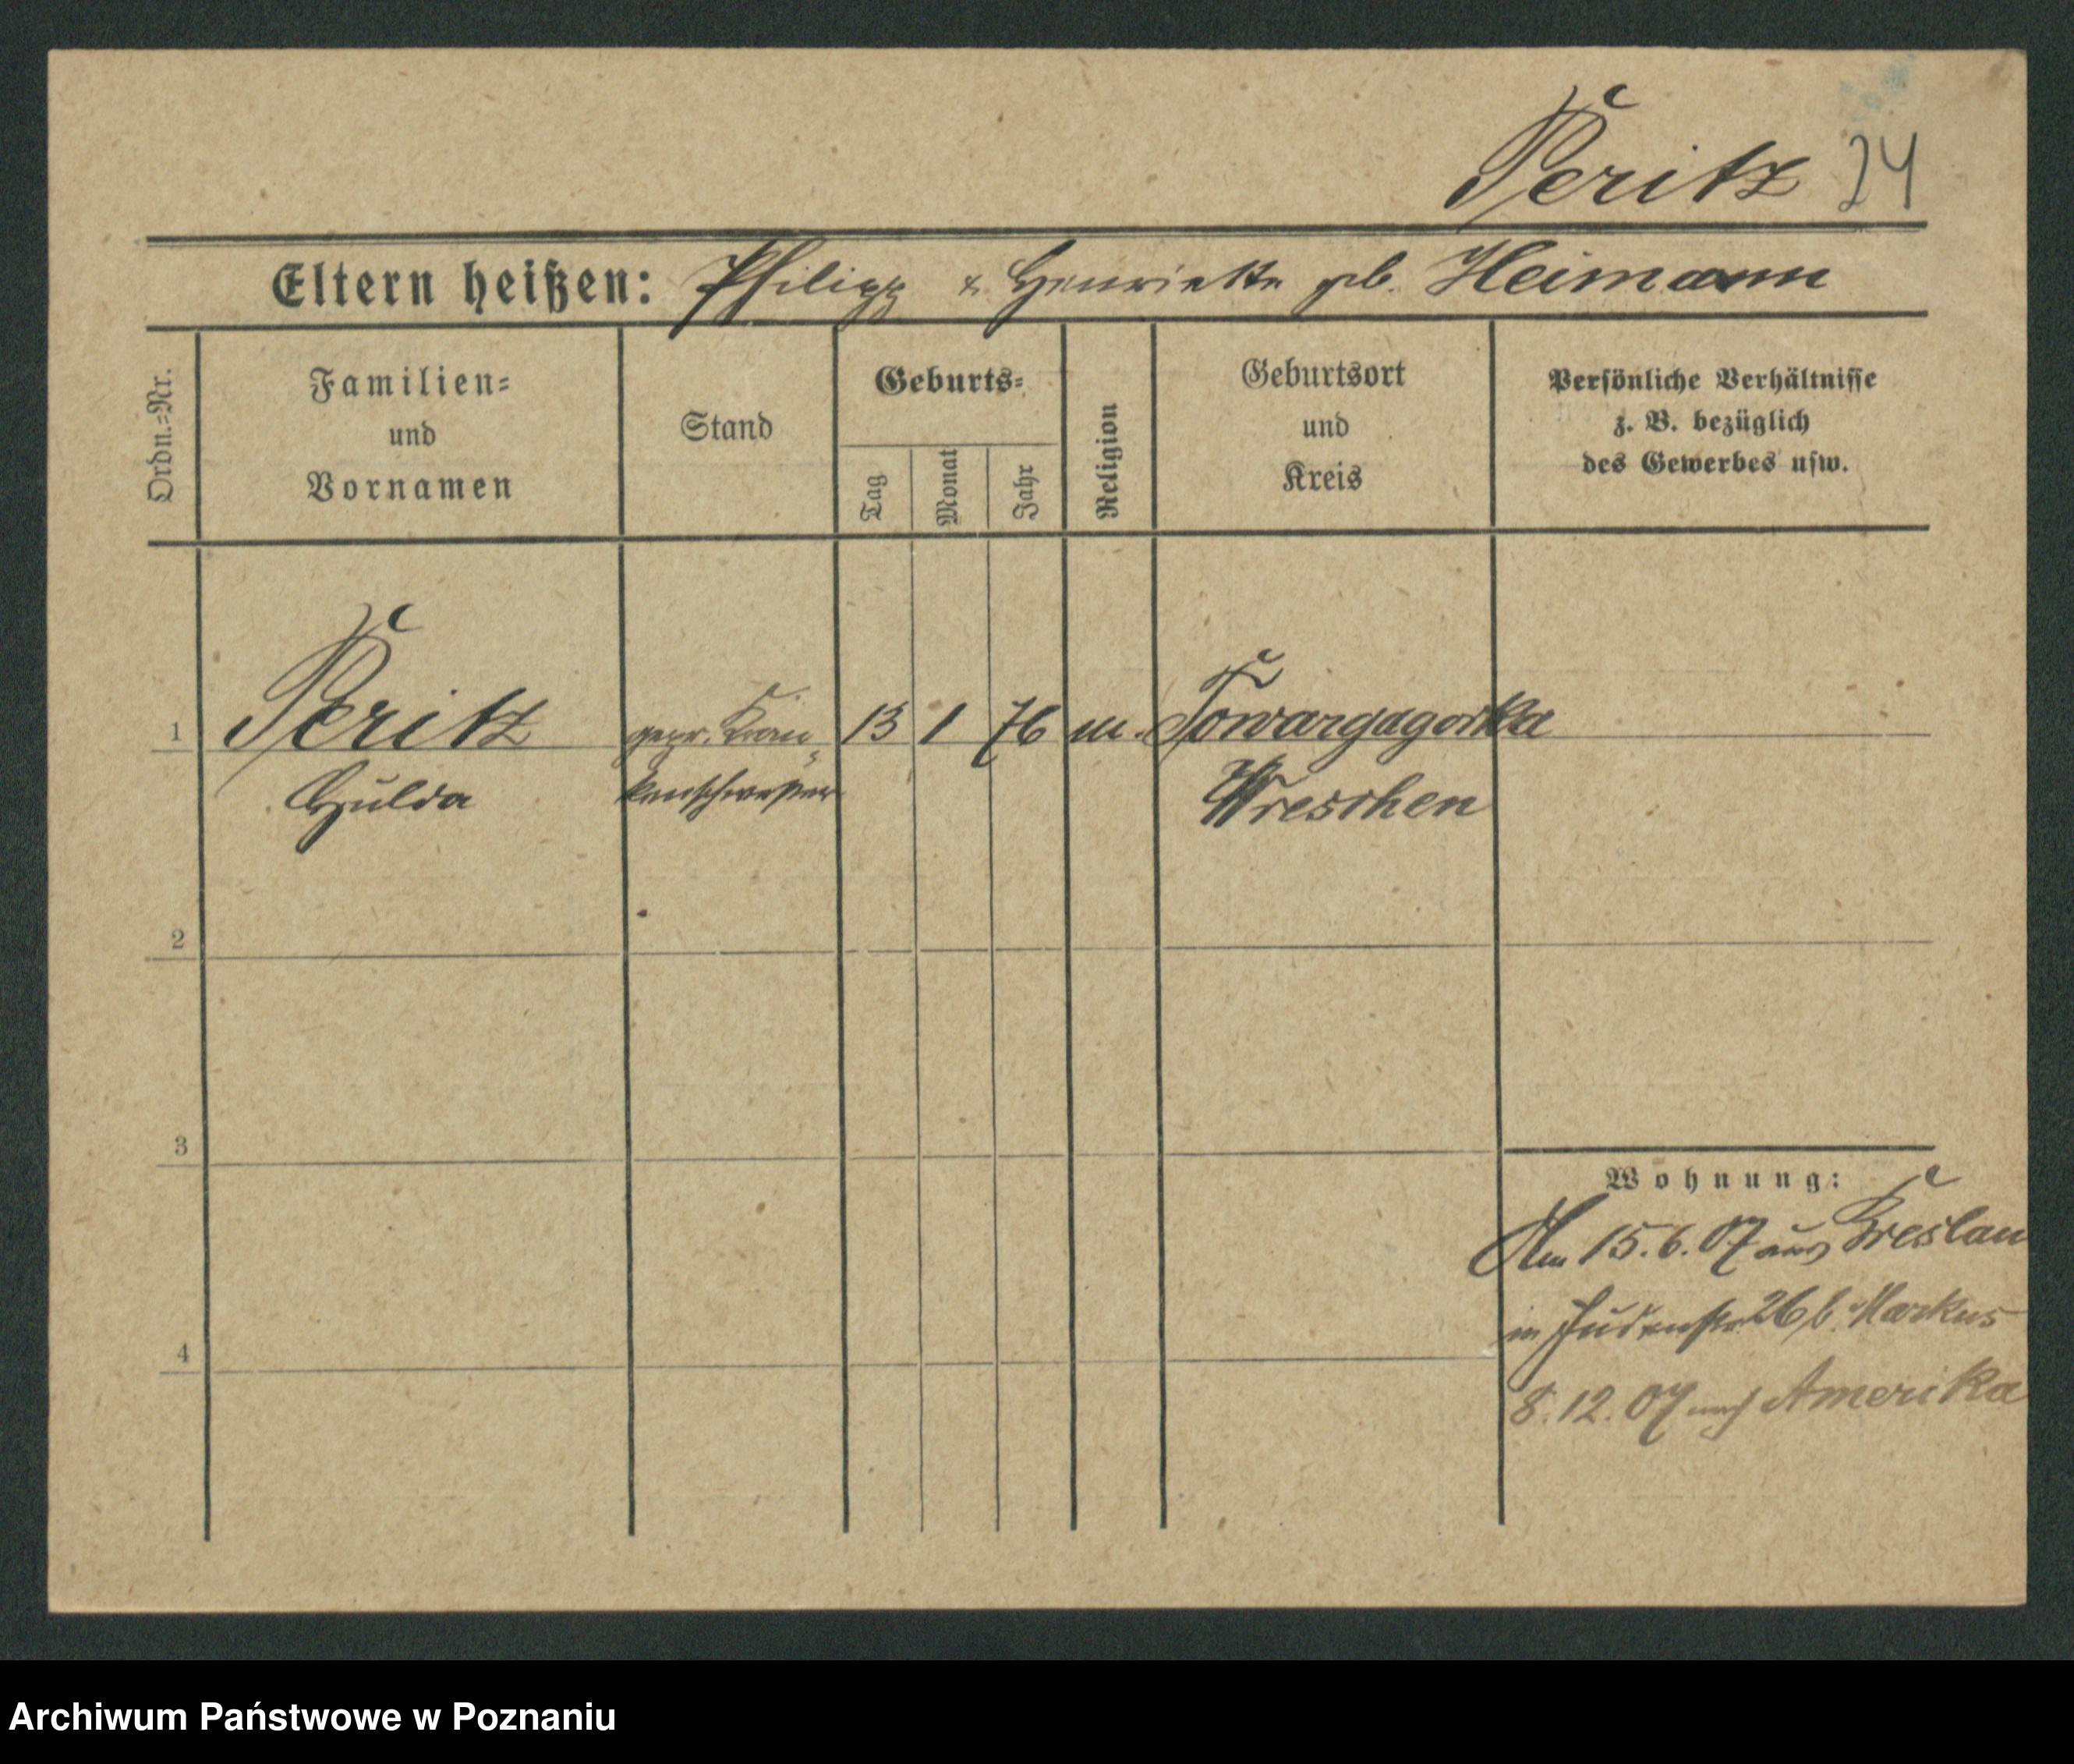 Peritz 24
Eltern heißen: Philipp & Henriette geb. Heimann
Ordn.=Nr.
Familien=
und
Vornamen
Stand
Geburts=
Tag
Monat
Jahr
Religion
Geburtsort
und
Kreis
Persönliche Verhältnisse
z. B. bezüglich
des Gewerbes usw.
1 Peritz gepr. Kran= 13 1 76 m.
Hulda kenschwester Wreschen
2
3
4
Wohnung:
Am 15.6.07 aus Breslau
in Judenstr. 26 b. Markus
8.12.07 nach Amerika
Archiwum Państwowe w Poznaniu